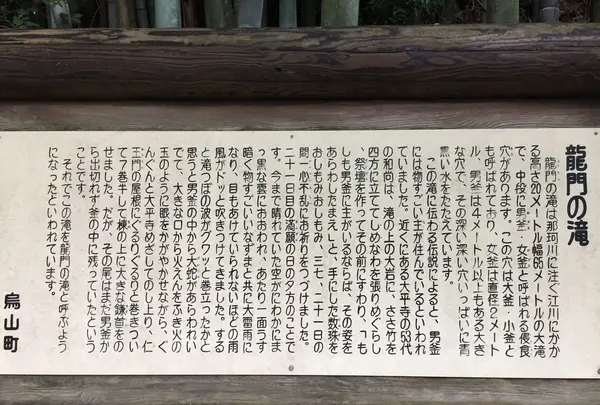 龍門の滝
龍門の滝は那珂川に注ぐ江川にかか
る高さ20メートル幅65メートルの大滝
で、中段に男釜・女釜と呼ばれる侵食
穴があります。この穴は大釜・小釜と
も呼ばれており、女釜は直径2メート
ル、男釜は4メートル以上もある大き
な穴で、その深い深い穴いっぱいに青
黒い水をたたえています。
この滝に伝わる伝説によると、男釜
には物すごい主が住んでいるといわれ
ていました。近くにある太平寺の53代
の和尚は、滝の上の大岩に、ささ竹を
四方に立ててしめなわを張りめぐらし
、祭壇を作ってその前にすわり、「も
しも男釜に主がいるならば、その姿を
あらわしたまえ」と、手にした数珠を
おしもみおしもみ、三七、二十一日の
間一心不乱にお祈りをつづけました。
二十一日目の満願の日の夕方のことで
す。今まで晴れていた空がにわかにま
っ黒な雲におおわれ、あたり一面うす
暗く物すごいいなずまと共に大雷雨に
なり、目もあけていられないほどの雨
風がドッと吹きつけてきました。する
と滝つぼの波がワワッと巻立ったかと
思うと男釜の中から大蛇があらわれい
でて、大きな口から火えんをふき火の
玉のように眼をかがやかせながら、ぐ
んぐんと太平寺めざしてのし上り、仁
王門の屋根にぐるりぐるりと巻きつい
て7巻半して棟の上に大きな鎌首をの
せました。だが、その尾はまだ男釜か
ら出切れず釜の中に残っていたという
ことです。
それでこの滝を龍門の滝と呼ぶよう
になったといわれています。
烏山町